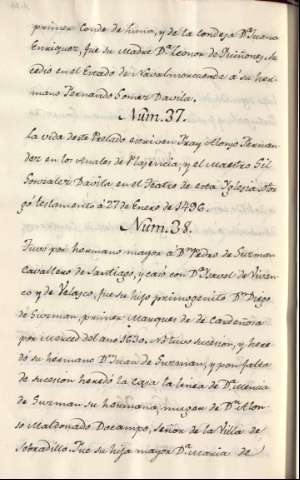 primer Conde de Luna, y de la Condesa Dª. Juana
Enriquez, fue su Madre Dª. Leonor de Quiñones, su
cedio en el Estado de Navalmorcuende a su her
mano Fernando Gomez Davila.
Núm. 37.
La vida deste Prelado escriven Fray Alonso Fernan
dez en los Anales de Plasencia, y el Maestro Gil
Gonzalez Davila en el Teatro de esta Iglesia. Otor
gó testamento á 27 de Enero de 1496.
Núm. 38.
Tuvo por hermano mayor á Dn. Pedro de Guzman
Cavallero de Santiago, y casó con Dª. Isavel de Vivan
co y de Velasco, fue su hijo primogenito Dn. Diego
de Guzman, primer Marques de de Cardeñosa
por merced del año 1630. No tuvo sucesion, y here
dó su hermano Dn. Juan de Guzman, y por falta
de sucesion heredó la Casa la linea de Dª. Mencia
de Guzman su hermana, muger de Dn. Alon
so Maldonado Docampo, señor de la Villa de
Sobradillo. Fue su hija mayor Dª. Maria de